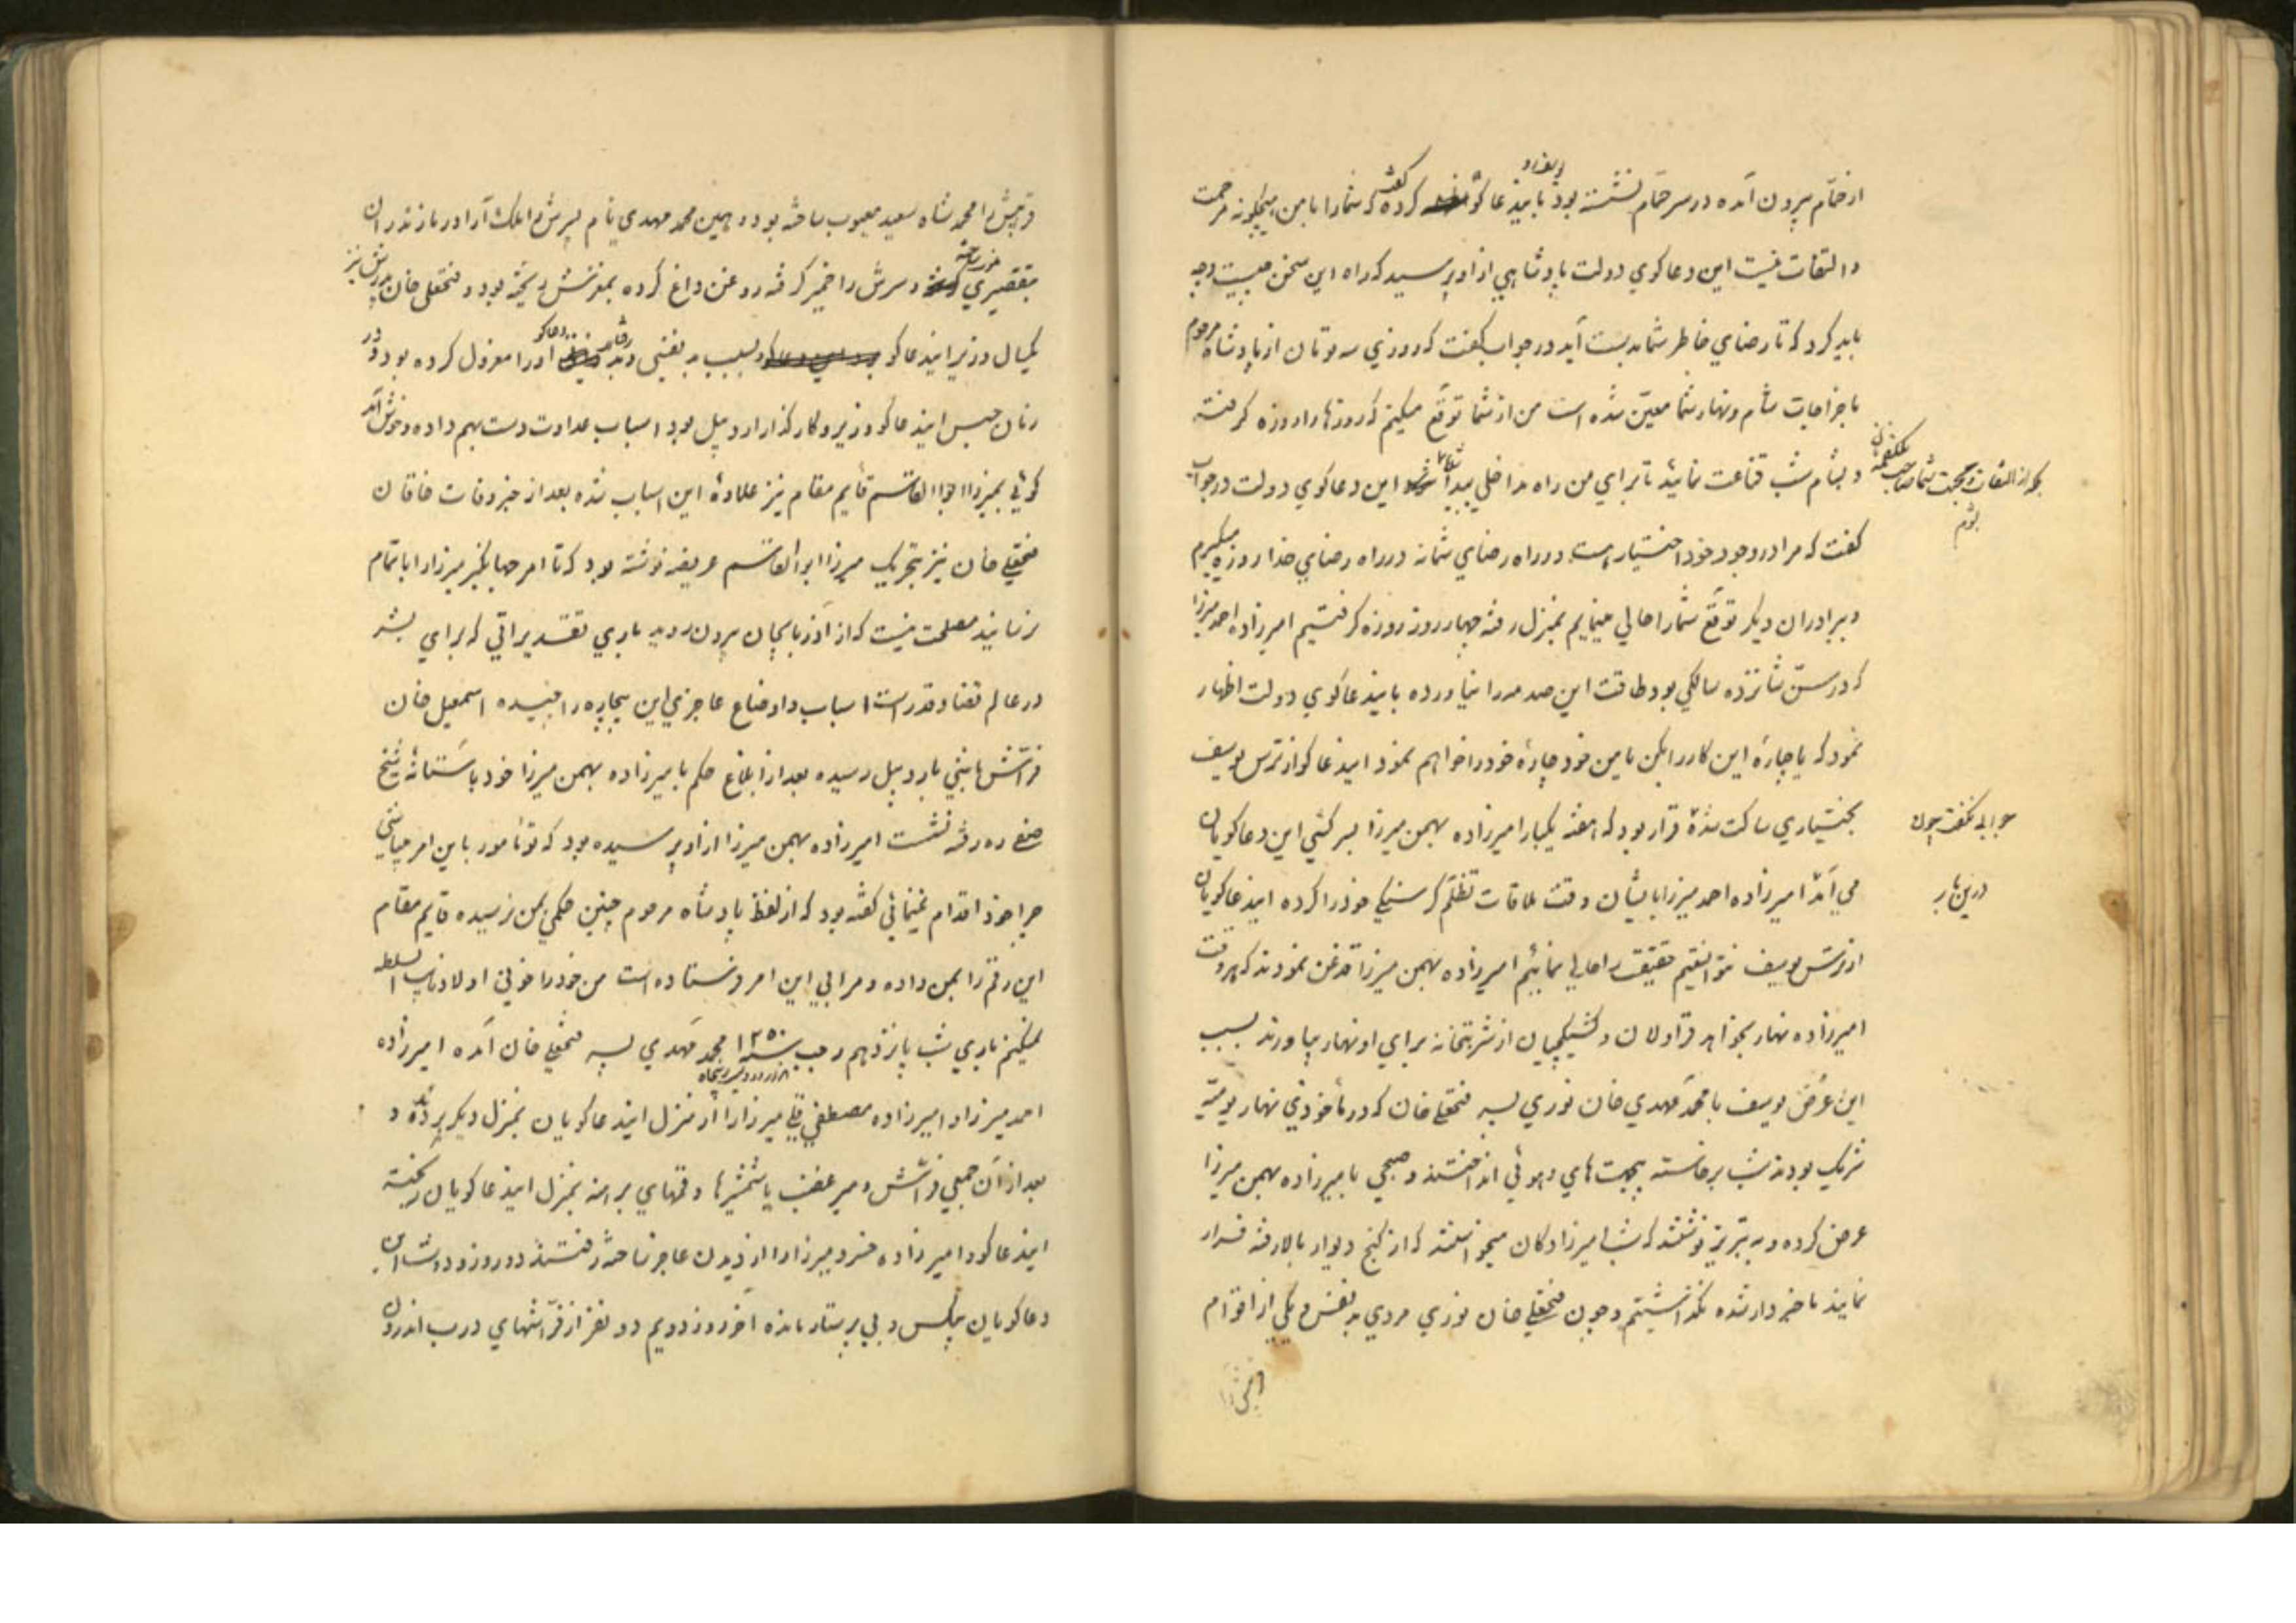 از حمّام بیرون آمده در سر حمّام نشسته بود باینذعا کو کرده گفت که شما را با من هیچکونه مرحمت
و التفات نیست این دعاکوی دولت پادشاهی از او پرسید که راه این سخن چیست و چه
باید کرد که تا رضای خاطر شما بدست آید در جواب بکفت که روزی سه تومان از پادشاه مرحوم
باخراجات شام و نهار شما معیّن شده است من از شما توقّع میکنم که روزها را روزه کرفته
و بشام شب قناعت نمائید تا برای من راه مداخلی پیدا شود این دعاکوی دولت در جواب
که از التفات و محبت شما
کفت که مرا در وجود خود اختیار هست در راه رضای شما نه در راه رضای خدا روزه میکیرم
و ببرادران دیکر توقّع شما را حالی مینمایم بمنزل رفته چهار روز روزه کرفتیم امیرزاده احمد میرزا
که در سنّ شانزده سالکی بود طاقت این صدمه را نیاورده باینذعاکوی دولت اظهار
نمود که یا چارهٔ این کار را بکن یا من خود چارهٔ خود را خواهم نمود اینذعاکو از ترس یوسف
بختیاری ساکت شده قرار بود که هفته یکبار امیرزاده بهمن میرزا بسرکشی این دعاکویان
جوابی نکفت چون
می آمد امیرزاده احمد میرزا بایشان وقت ملاقات تظلّم کرسنکی خود را کرده اینذعاکویان
در نهار
از ترس یوسف نتوانستیم حقیقت را حالی نمائیم امیرزاده بهمن میرزا قدغن نمودند که هر وقت
امیرزاده نهار بخواهد قراولان و کشیکچیان از شربتخانه برای او نهار بیاورند بسبب
این عرض یوسف با محمّد مهدی خان نوری پسر فتحعلی خان که در ماخوذی نهار یومیّه
شریک بودند شب برخاسته پیچیت های و هوئی انداختند و صبحی بامیرزاده بهمن میرزا
عرض کرده و به تبریز نوشتند که شب امیرزادکان میخواستند که از کنج دیوار بالا رفته فرار
نمایند ما خبردار شده نکذاشتیم و چون فتحعلی خان نوری مردی بد نفس و یکی از اقوام
قرچش را محمد شاه سعید معیوب ساخته بود و همین محمد مهدی نام پسرش را ملک آرا در مازندران
بتقصیری و سرش را خمیر کرفته روغن داغ کرده بمغزش ریخته بود و فتحعلی خان پدرش نیز
یکسال وزیر اینذعاکو بود بسبب بد نفسی او را معزول کرده بود و در
زمان حبس اینذعاکو وزیر و کارکذار اردبیل بود اسباب عداوت دست بهم داده و خوش آمد
کوئی بمیرزا ابوالقاسم قایم مقام نیز علاوهٔ این اسباب شده بعد از خبر وفات خاقان
فتحعلی خان نیز بتحریک میرزا ابوالقاسم عریضه نوشته بود که تا امر جهانکیر میرزا را باتمام
نرسانید مصلحت نیست که از آذربایجان بیرون روید باری تقدیراتی که برای بشر
در عالم قضا و قدر است اسباب و اوضاع عاجزی این بیچاره را چیده اسمعیل خان
فرّاش باشی باردبیل رسیده بعد از ابلاغ حکم بامیرزاده بهمن میرزا خود باستانهٔ شیخ
صفی ره رفته نشست امیرزاده بهمن میرزا از او پرسیده بود که تو مامور باین امر میباشی
چرا خود اقدام نمینمائی کفته بود که از لفظ پادشاه مرحوم چنین حکمی بمن نرسیده قایم مقام
این رقم را بمن داده و مرا بی این امر فرستاده است من خود را خونی اولاد نایب السلطنه
نمیکنم باری شب پانزدهم رجب سنه ۱۲۵۰ محمّد مهدی پسر فتحعلی خان آمده امیرزاده
احمد میرزا و امیرزاده مصطفی قلی میرزا را از منزل اینذعاکویان بمنزل دیکر بردند و
بعد از آن جمعی فرّاش و میرغضب با شمشیرها و قمهای برهنه بمنزل اینذعاکویان ریخته
اینذعاکو و امیرزاده خسرو میرزا را از دیدن عاجز ساخته رفتند دو روز و دو شب این
دعاکویان بیکس و بی پرستار مانده آخر روز دویم دو نفر از فرّاشهای درب اندرون